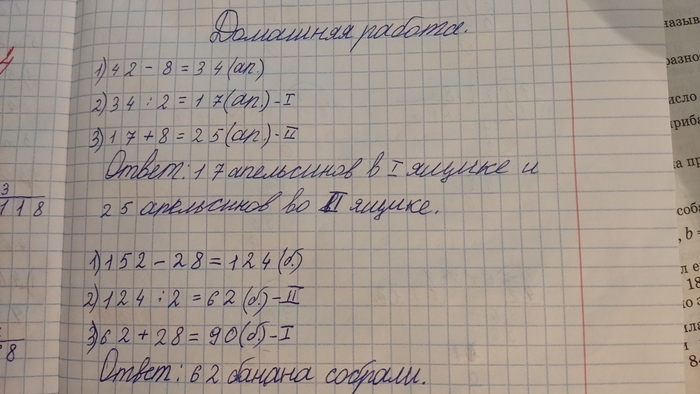 Домашняя работа.
1) 42 - 8 = 34 (ап.)
2) 34 : 2 = 17 (ап.) - I
3) 17 + 8 = 25 (ап.) - II
Ответ: 17 апельсинов в I ящике и
25 апельсинов во II ящике.
1) 152 - 28 = 124 (б.)
2) 124 : 2 = 62 (б.) - II
3) 62 + 28 = 90 (б) - I
Ответ: 62 банана собрали.
4
3
118
8
азыв
разно
исло
приба
а пр
соб
, b =
л е
18
ко
ила
и
8